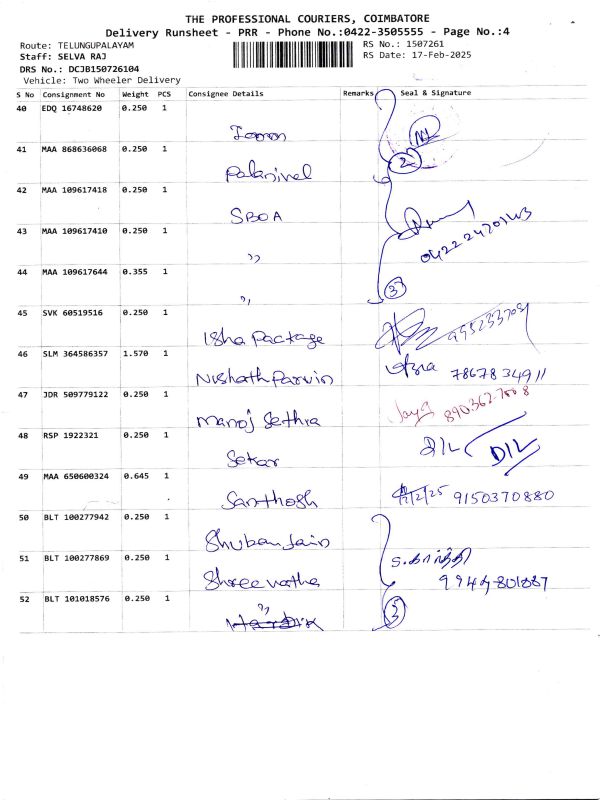 THE PROFESSIONAL COURIERS, COIMBATORE
Delivery Runsheet - PRR - Phone No.:0422-3505555 - Page No.:4
Route: TELUNGUPALAYAM RS No.: 1507261
Staff: SELVA RAJ RS Date: 17-Feb-2025
DRS No.: DCJB150726104
Vehicle: Two Wheeler Delivery
S No Consignment No Weight PCS Consignee Details Remarks Seal & Signature
40 EDQ 16748620 0.250 1
41 MAA 868636068 0.250 1
2
Palanivel
42 MAA 109617418 0.250 1
SBOA
43 MAA 109617410 0.250 1
"
44 MAA 109617644 0.355 1
" 3
45 SVK 60519516 0.250 1
Isha Package
46 SLM 364586357 1.570 1
Nishath Parvin 78678 34911
47 JDR 509779122 0.250 1
Manoj Sethia
48 RSP 1922321 0.250 1
Sekar D/L D/L
49 MAA 650600324 0.645 1
Santhosh 9150370880
50 BLT 100277942 0.250 1
Shuban Jain
51 BLT 100277869 0.250 1
Shree natha
52 BLT 101018576 0.250 1
" 3